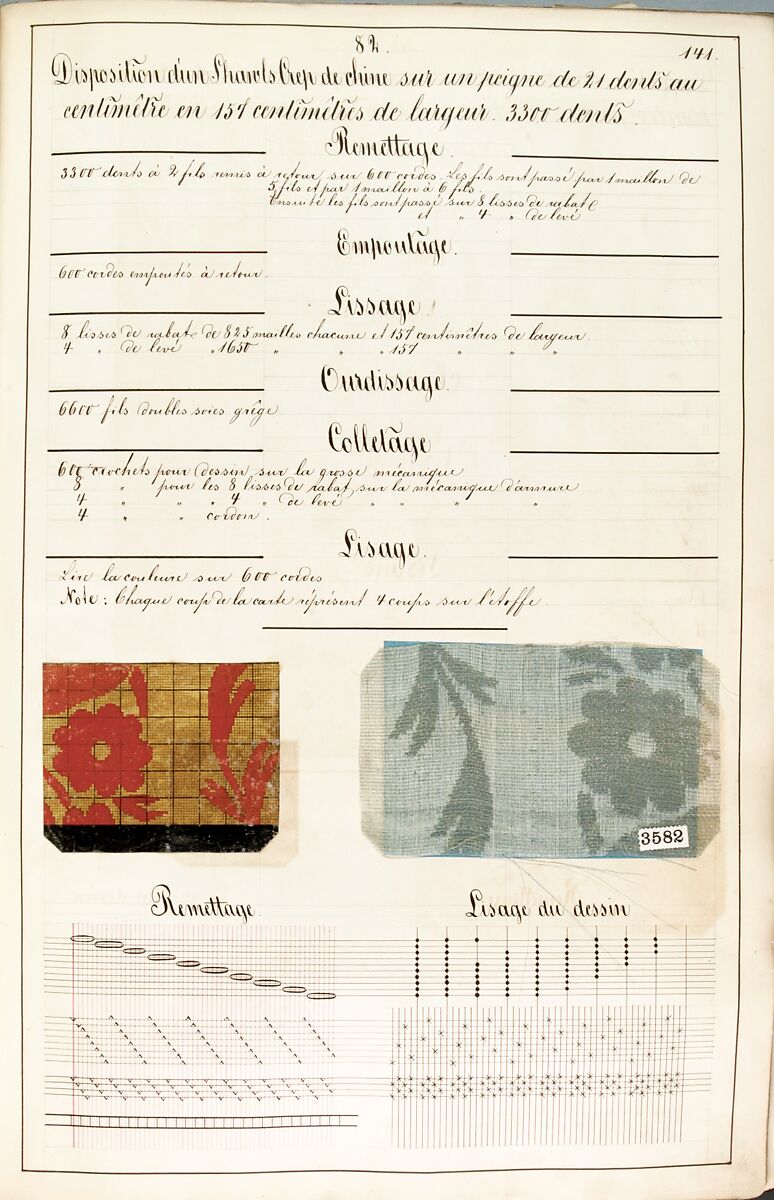 82.
141.
Disposition d'un Shawls Crep de chine sur un peigne de 21 dents au
centimêtre en 157 centimêtres de largeur. 3300 dents.
Remettage.
3300 dents à 2 fils remis à retour sur 600 cordes. Les fils sont passé par 1 maillon de
5 fils et par 1 maillon à 6 fils.
Ensuite les fils sont passé sur 8 lisses de rabat
et " 4 " de levé
Empoutage.
600 cordes empoutés à retour.
Lissage.
8 lisses de rabat de 825 mailles chacune et 157 centimêtres de largeur.
4 " de levé " 1650 " " " 157 " " "
Ourdissage.
6600 fils doubles soies grège
Colletage
600 crochets pour dessin sur la grosse mécanique
8 " pour les 8 lisses de rabat sur la mécanique d'armure
4 " " " 4 " de levé " " " "
4 " " cordon.
Lisage.
Lire la couleure sur 600 cordes
Note: Chaque coup de la carte réprésent 4 coups sur l'étoffe.
3582
Remettage.
Lisage du dessin